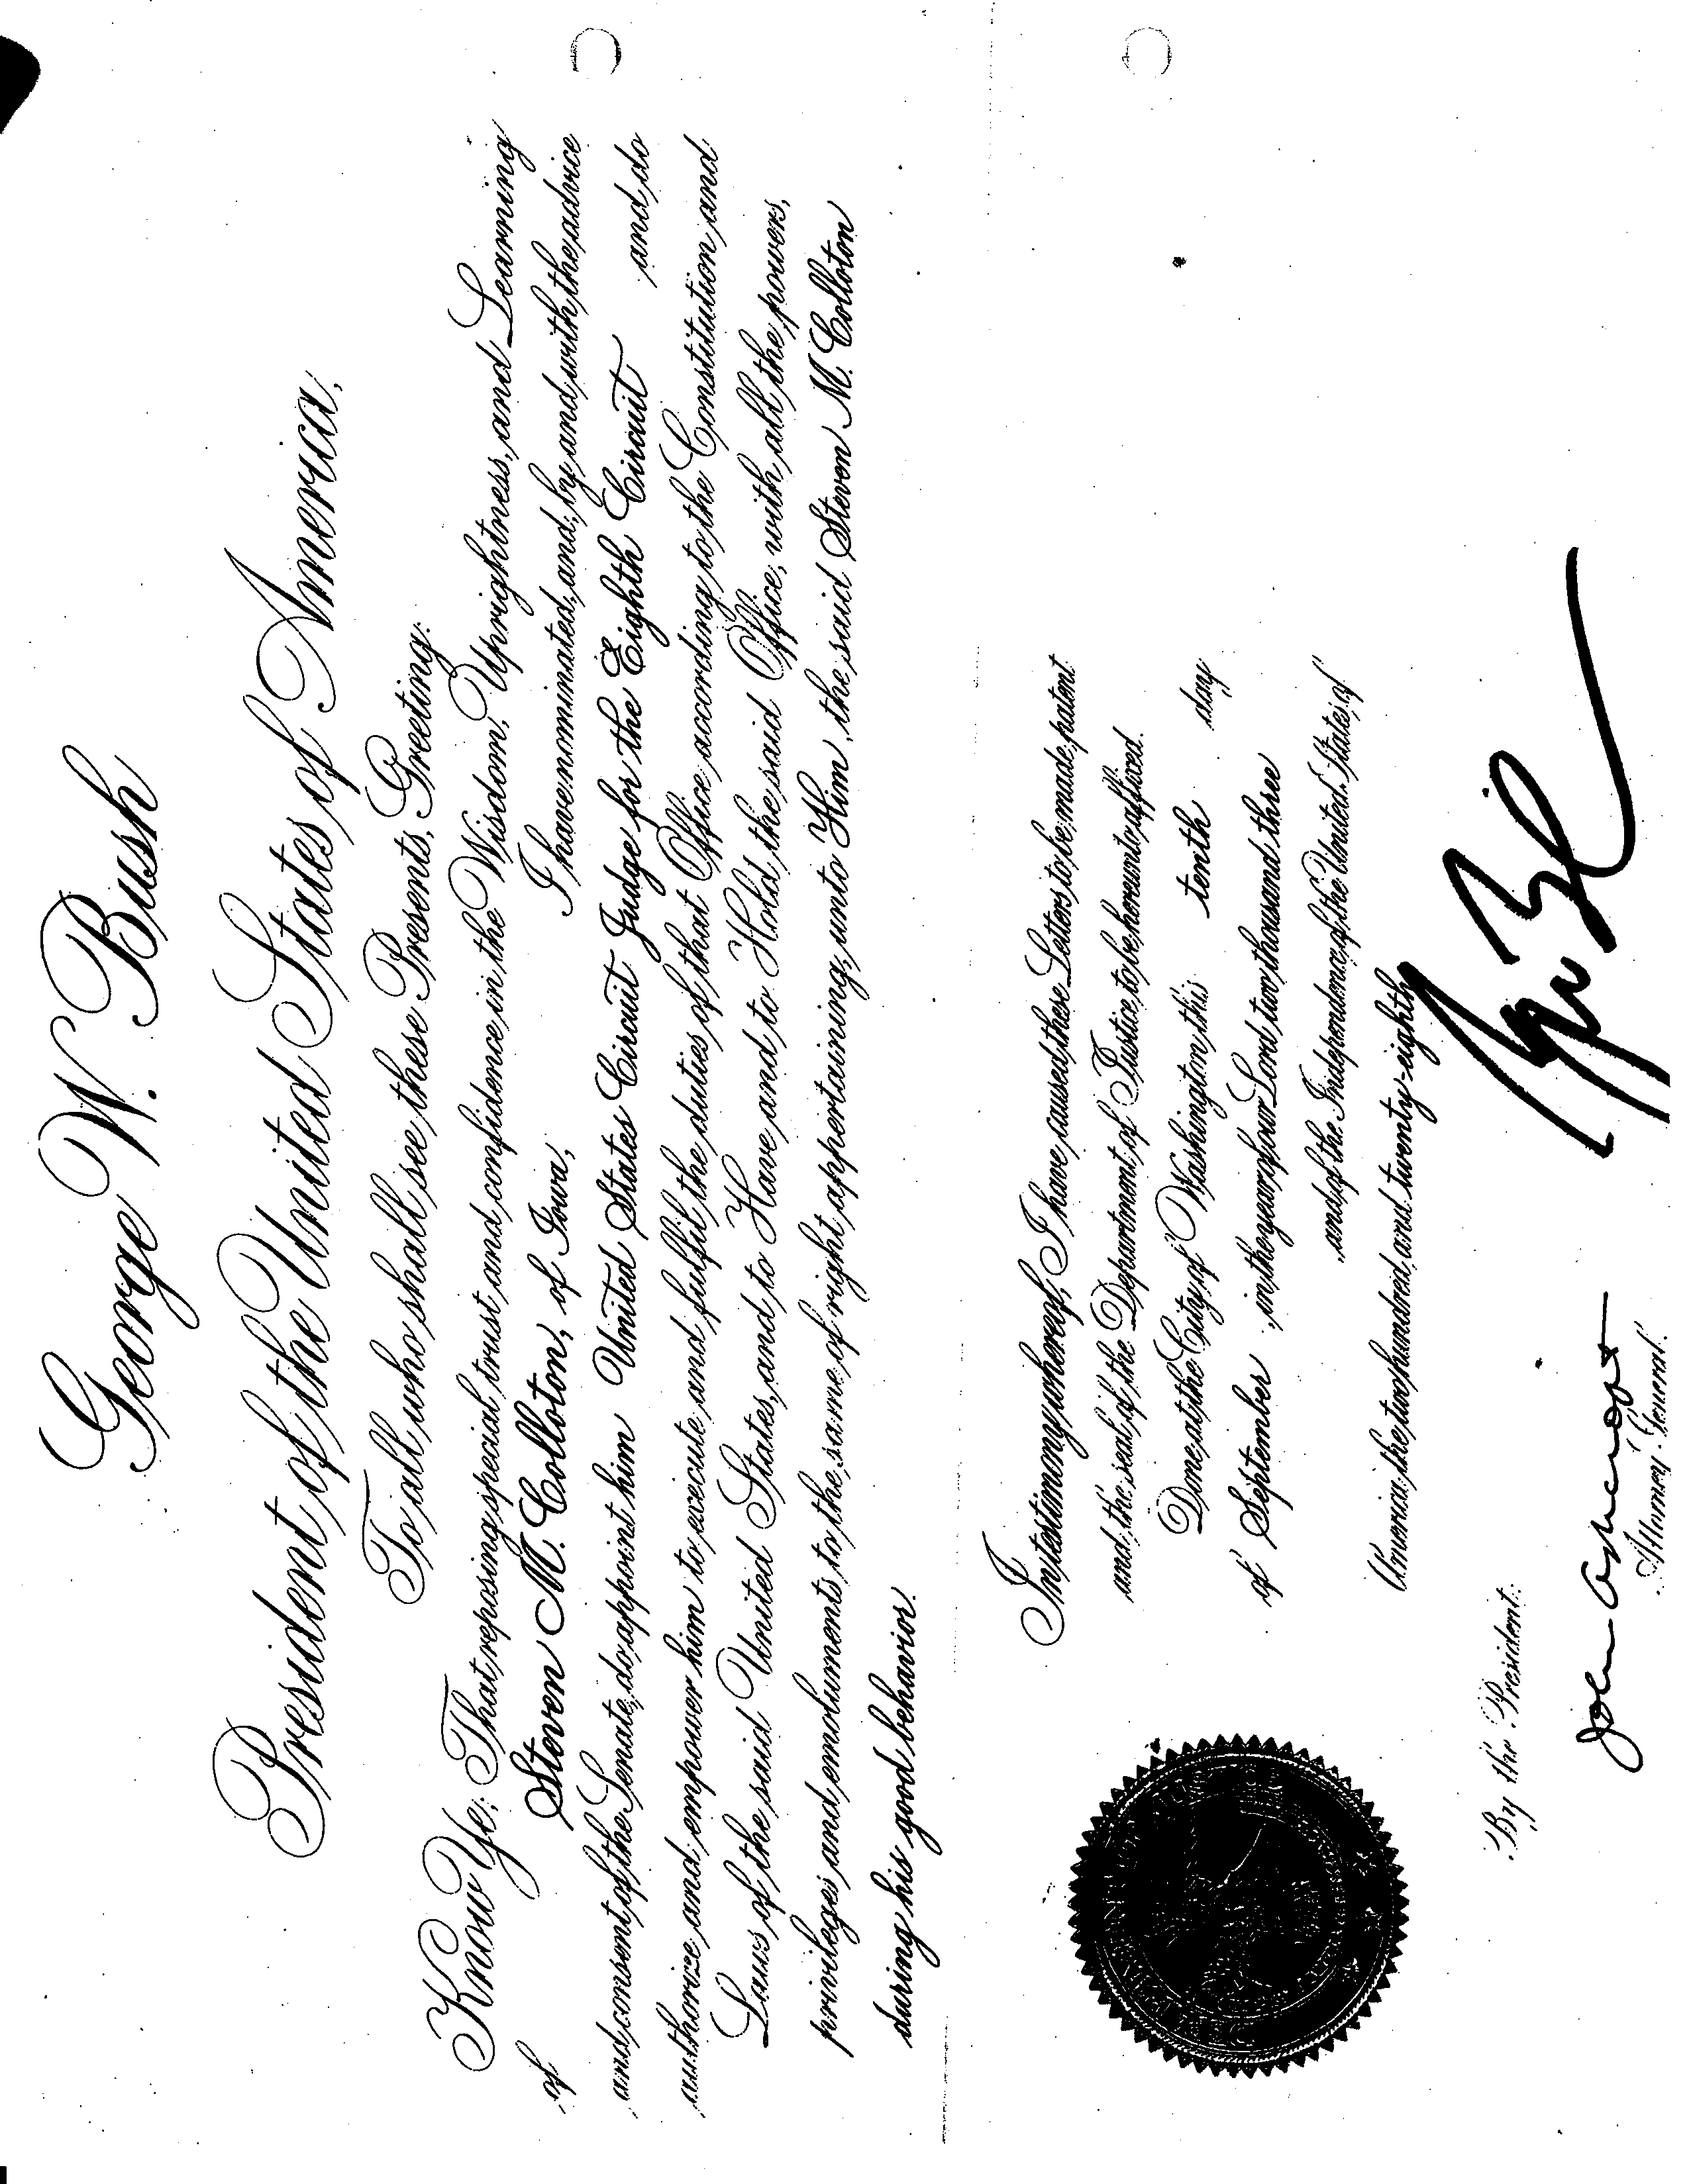 George W. Bush
President of the United States of America,
To all who shall see these Presents, Greeting:
Know Ye; That reposing special trust and confidence in the Wisdom, Uprightness, and Learning
of Steven M. Colloton, of Iowa, I have nominated, and, by and with the advice
and consent of the Senate, do appoint him United States Circuit Judge for the Eighth Circuit and do
authorize and empower him to execute and fulfil the duties of that Office according to the Constitution and
Laws of the said United States, and to Have and to Hold the said Office, with all the powers,
privileges and emoluments to the same of right appertaining, unto Him, the said Steven M. Colloton
during his good behavior.
In testimony whereof, I have caused these Letters to be made patent
and the seal of the Department of Justice to be hereunto affixed.
Done at the City of Washington this tenth day
of September in the year of our Lord two thousand three
and of the Independence of the United States of
America the two hundred and twenty-eighth.
By the President:
John Ashcroft
Attorney General.